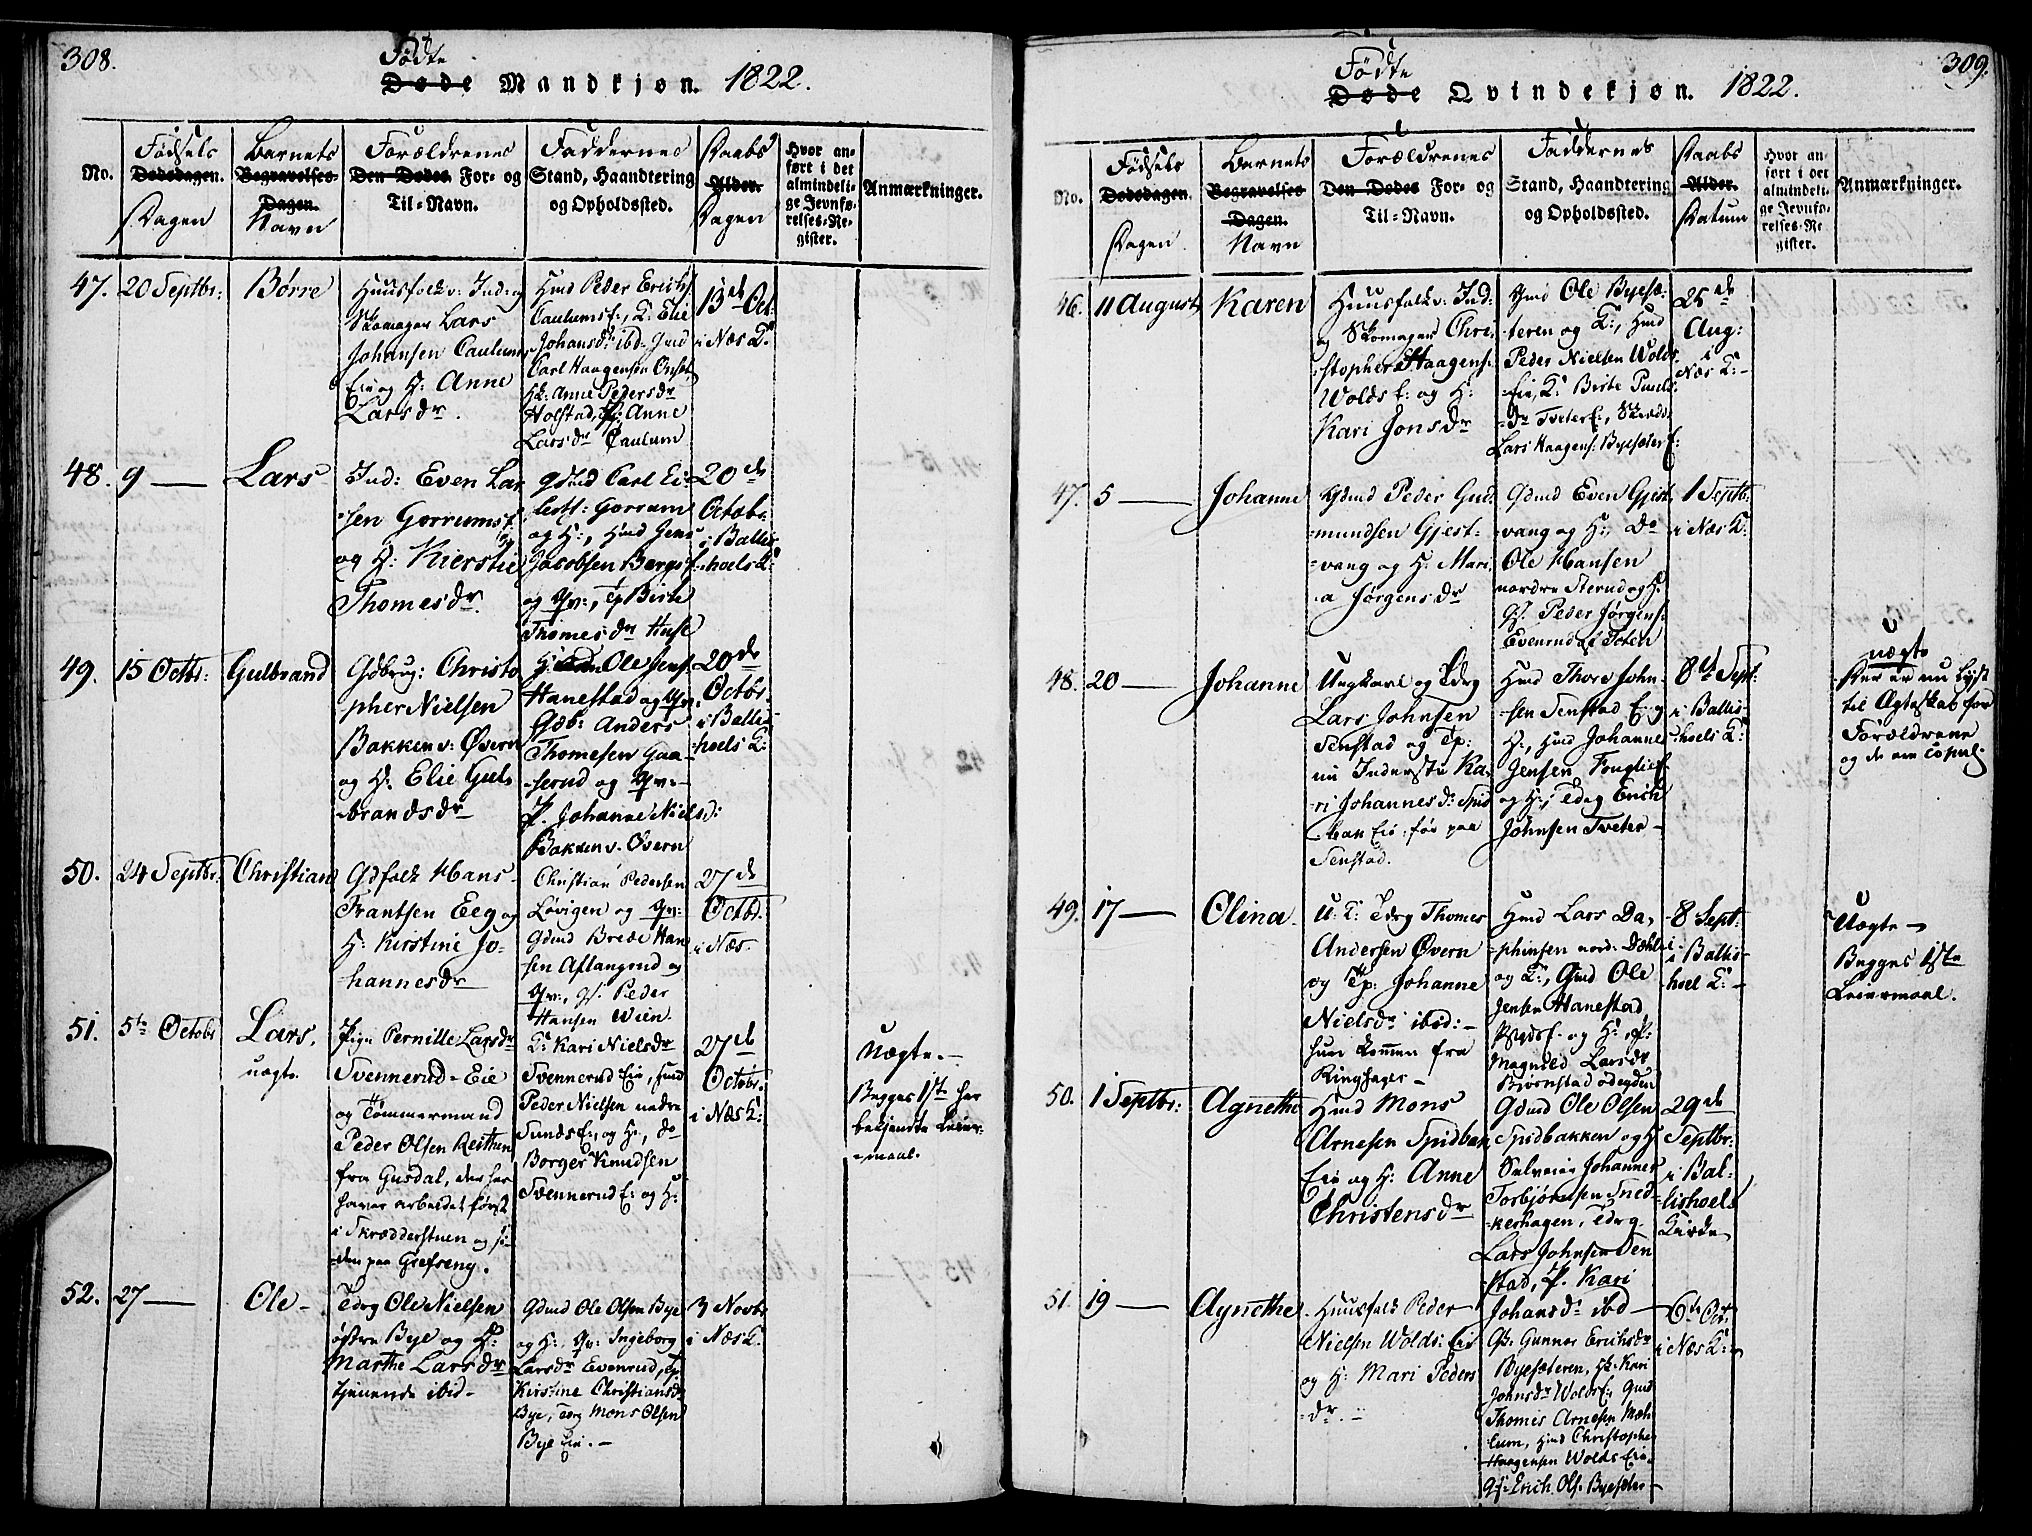 308.
Fødte
Døde Mandkjøn. 1822.
No.
Fødsels
Dødsdagen.
Dagen
Barnets
Begravelses-
Dagen.
Navn
Forældrenes
Den Dødes For- og
Til-Navn.
Faddernes
Stand, Haandtering
og Opholdssted.
Daabs
Alder.
Dagen
Hvor an-
ført i det
almindeli-
ge Jevnfø-
relses-Re-
gister.
Anmærkninger.
47. 20 Septbr: Børre
Huusfolk v: Ind og
Skomager Lars
Johansen Caulums
Eie og H: Anne
Larsdr.
Hmd Peder Erichs:
Caulumsf:, K: Elie
Johansdr ibd. Gmd
Carl Haagensen
Hk: Anne Pedersdr
Holstad, P: Anne
Larsdr Caulum
13de Oct:
i Næs K:
48. 9 — Lars
Ind: Even Lar
sen Gorrumsf
og H: Kierstie
Thomesdr.
Gdmd Carl Ei-
Gorrum
og H:, Hmd Jens
Jacobsen Bergs f
og Qv:, Tp Birte
Thomesdr Huse
20de
Octobr:
i Ballis-
hoels K:
49. 15 Octbr: Gulbrand
Gdbrug: Christo
pher Nielsen
Bakken v: Øvern
og H: Elie Gul-
brandsdr
H: Ole Jens:
Hanestad og Qv.
Gdb: Anders
Thomesen Gaa-
serud og Qv:-
P. Johanne Niels d:
Bakken v. Øvern
20de
Octbr.
i Ballis
hoels K:
50. 24 Septbr. Christian
Gdfolk Hans
Frantsen Eeg og
H: Kirstine Jo-
hannesdr
Christian Pedersen
Løvigen og Qv:
Gdmd Brede Han
sen Aflangrud og
Qv:, P. Peder
Hansen Wien.
27de
Octbr.
i Næs
51. 5te Octobr Lars.
uægte.
Pige Pernille Larsdr
Svennerud-Eie
og Tømmermand
Peder Olsen
fra Gusdal, der har
havær arbeidet først
i Skrædderstuen og si-
den paa Grefseng.
K: Kari Nielsdr
Svennerud Eie, Hmd
Peder Nielsen nedre
Sundsf:, og H:, do
Borger Knudsen
Svennerud E: og H:
27de
Octobr.
i Næs K:
Uægte. -
Begges 1ste her
bekjendte Leier-
maal.
52. 27 — Ole -
Tdrg Ole Nielsen
østre Bye og H:
Marthe Larsdr
tjenende ibid-
Gdmd Ole Olsen Bye
og H:, Qv: Ingeborg
Larsdr Evenrud, Tp
Kirstine Christiansdr
Bye, Tdrg Mons Olsen
Bye Eie. -
3 Novbr
i Næs K:
309.
Fødte
Døde Qvindekjøn. 1822.
No.
Fødsels
Dødsdagen.
Dagen.
Barnets
Begravelses
Dagen.
Navn
Forældrenes
Den Dødes For- og
Til-Navn.
Faddernes
Stand, Haandtering
og Opholdssted.
Daabs
Alder.
Datum
Hvor an-
ført i det
almindeli-
ge Jevnfø-
relses-Re
gister.
Anmærkninger.
46. 11 August Karen
Huusfolk v: Ind:
og Skomager Chri-
stopher Haagens:
Wolds E: og H:
Kari Jonsdr
Gmd Ole Byesæ-
teren og K:, Hmd
Peder Nielsen Wolds
Eie, K: Birte Pauls
dr Tveter E:,
Lars Haagens: Byesæter E:
25de
Aug:
i
Næs K:-
47. 5 — Johanne
Gdmd Peder Gud
mundsen Gjest-
vang og H: Mari-
a Jørgensdr
Gdmd Even Gjest
vang og H:, Do
Ole Hansen
nordre Sterud og H:
P. Peder Jørgens:
Evenrud af Toten
1 Septbr.
i Næs K:
48. 20 — Johanne
Ungkarl og Tdrg
Lars Johnsen
Senstad og Tp:
nu Inderste Ka-
ri Johannesdr Spid
bak Eie: før paa
Senstad.
Hmd Thore John-
sen Senstad E: og
H:, Hmd Johannes
Jensen
og H:, Tdrg Erich
Johnsen Tveter-
8de Sept:
i Ballis-
hoels K:
uægte
Der er nu lyst
til Ægteskab for
Forældrene
og de ere Copul:
49. 17 — Olina.
U: K: Tdrg Thomes
Andersen Øvern
og Tp: Johanne
Nielsdr ibid:-
hun kommen fra
Ringsager-
Hmd Lars Da-
phinsen nord: Dæhli
og K:, Gmd Ole
Jensen Hanestad
og H:, P:
Magnild Larsdr
Bjørnstad
8 Sept:
i Ballis-
hoel K:-
Uægte-
Begges 1ste
Leiermaal.
50. 1 Septbr: Agnethe
Hmd Mons
Arnesen Spidbak
Eie og H: Anne
Christensdr
Gdmd Ole Olsen
Spidbakken og H:
Selveier Johannes
Torbjørnsen Sned-
kerhagen, Tdrg
Lars Johnsen Sen
stad, P. Kari
Johansdr ibd-
29de
Septbr:
i Bal-
lishoels
Kirke
51. 19 — Agnethe
Huusfolk Peder
Nielsen Wolds: Eie
og H: Mari Peders
dr. -
Gk: Gunnor Erichsdr
Byesæteren, Hk: Kari
Johnsdr Wolds E: Gmd
Thomes Arnesen Mæh
lum, Hmd Christopher
Haagensen Wolds Eie,
Erich Ols: Byesæter-
6te Oct.
i Næs K:-